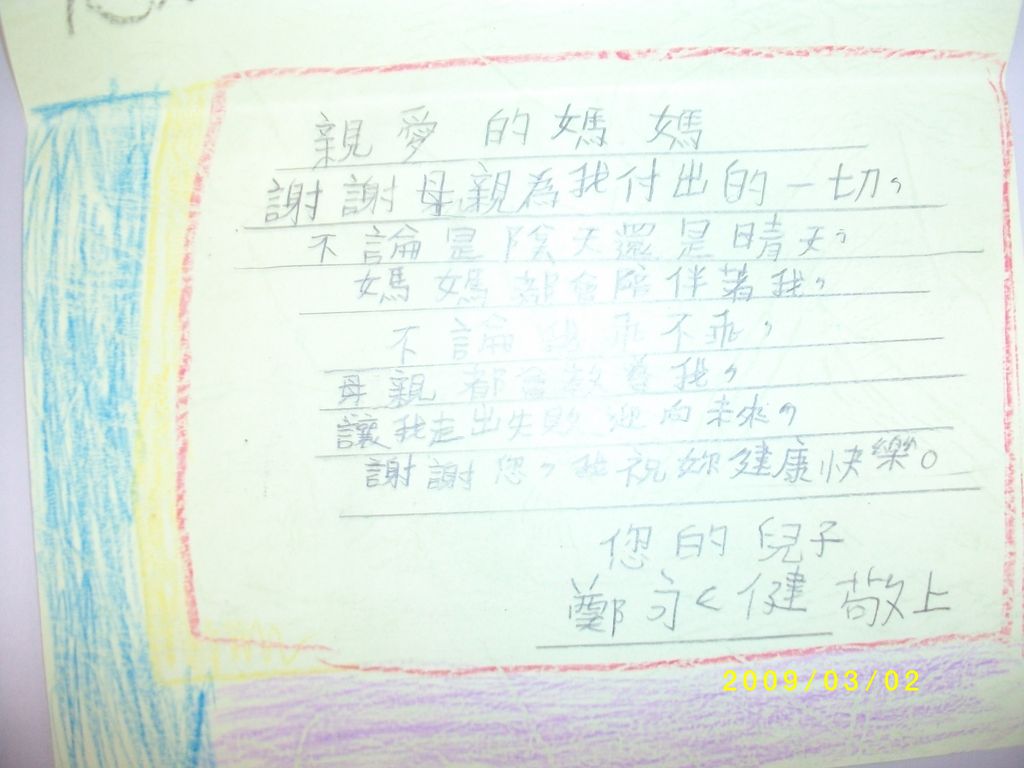 親愛的媽媽
謝謝母親為我付出的一切,
不論是陰天還是晴天,
媽媽都會陪伴著我,
不論我乖不乖,
母親都會教導我,
讓我走出失敗迎向未來,
謝謝您,我祝妳健康快樂。
您的兒子
鄭永健 敬上
2009/03/02